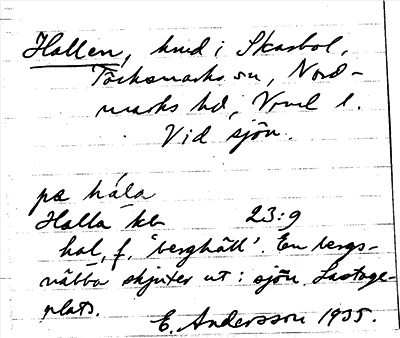 Hallen, hmd i Skarbol,
Töcksmarks sn, Nord-
marks hd, Vrml l.
Vid sjön.
pɑ hála
Halla kb 23:9
hal, f. 'berghäll'. En bergs-
näbba skjuter ut i sjön. Lastage-
plats.
E. Andersson 1935.